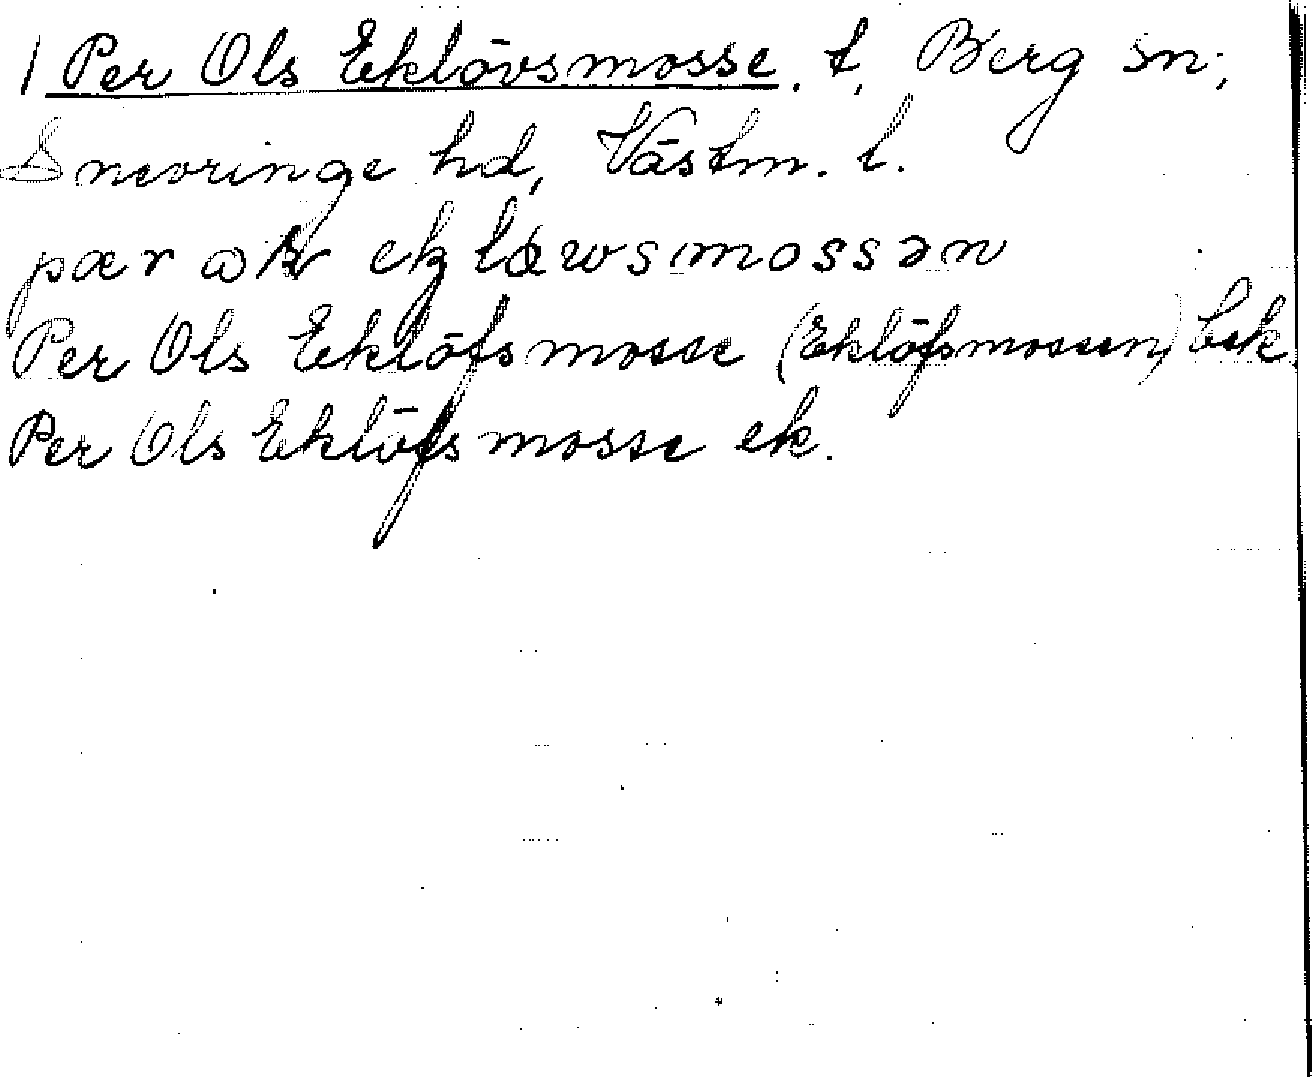 1 Per Ols Eklövsmosse. t, Berg sn;
Snevringe hd, Västm. l.
pær eklæwsmossən
Per Ols Eklöfsmosse (Eklöfsmossen) bek.
Per Ols Eklöfsmosse ek.